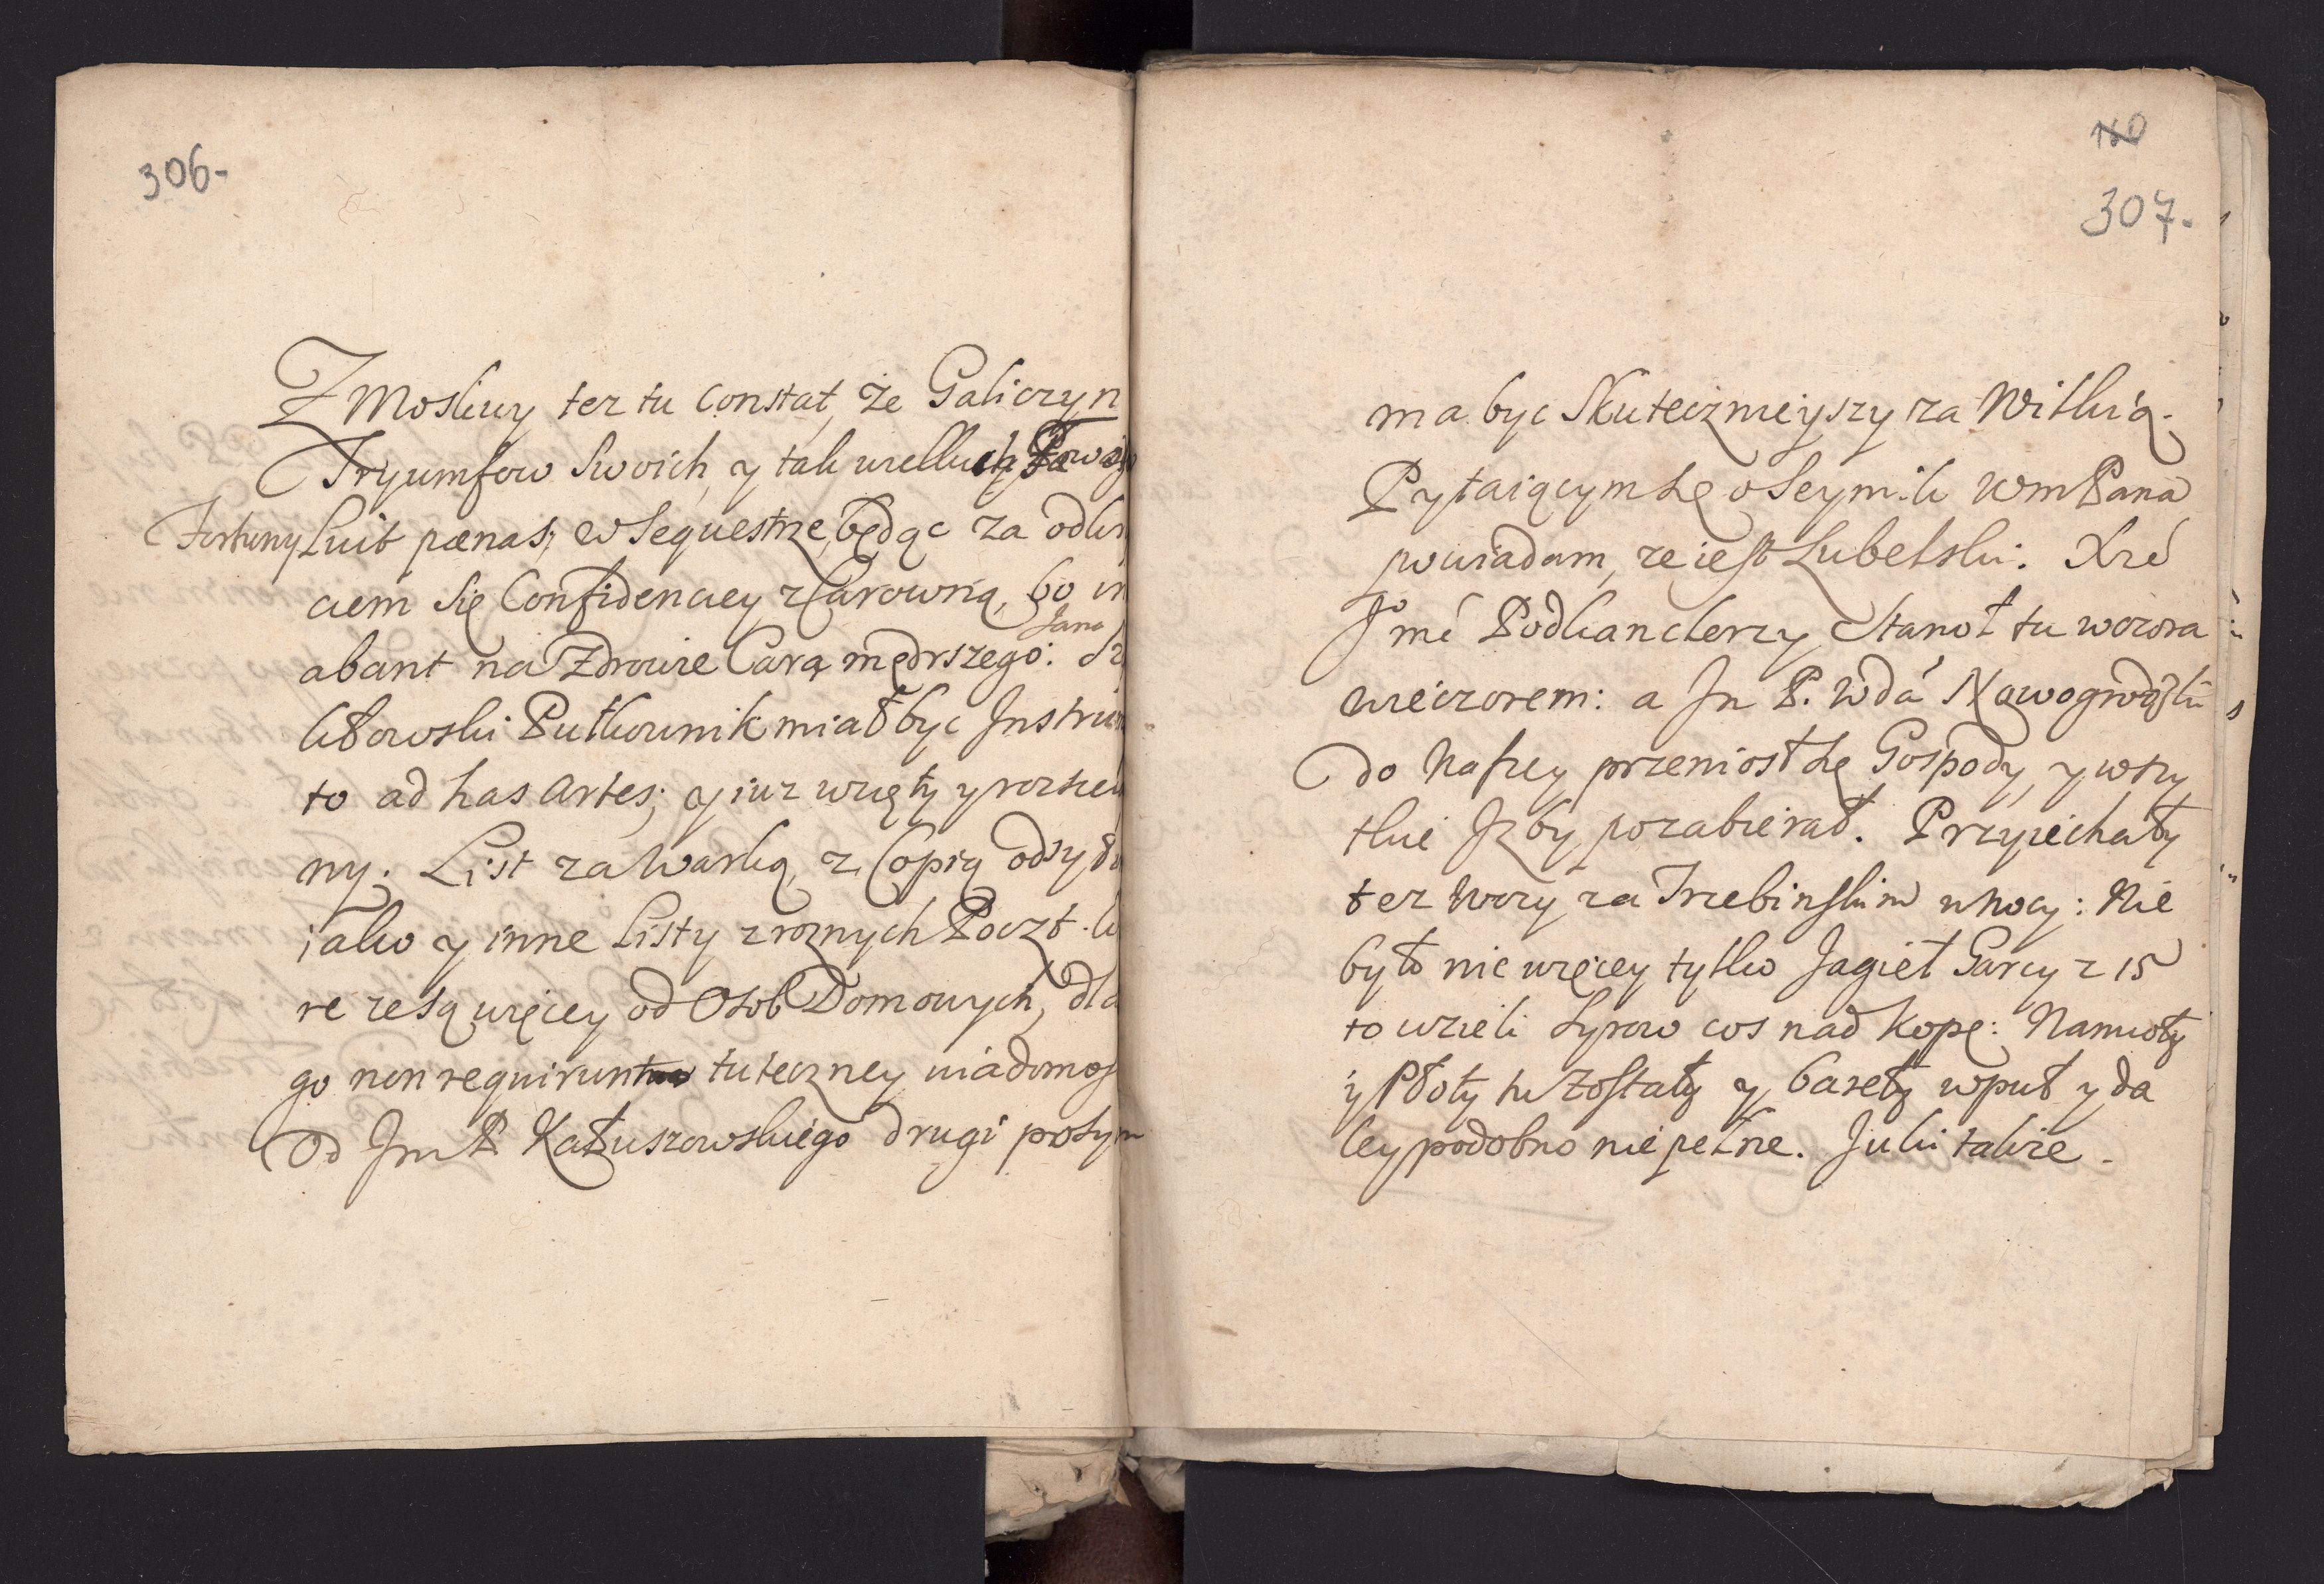 306-
Z Moskwy tez tu Constat, że Galiczyn
Tryumfow Swoich, y tak wielkich
Fortuny Luit pænas, w Sequestrze, będąc za odkry
ciem Się Confidenciey z Carowną, bo in
Jana
abant na Zdrowie Cara mędrszego:
kłowski Pułkownik miał byc Instrum
to ad has Artes; y iuz wzięty y rozsie
ny. List za Warką, z Copią odsyła
iako y inne Listy z roznych Poczt. k
re ze są więcey od Osob Domowych, dla
go non requirunt tuteczney wiadomos
Od Jm P Kałuszowskiego drugi potym
180
307.
ma byc Skutecznieyszy za Witkią.
Pytaiącym się o Seymik WmPana
powiadam, ze iest Lubelski. Xże
Jmć Podkanclerzy Stanoł tu wczora
wieczorem: a Jm P. Wda Nowogrodzki
do Naszey przeniosł się Gospody, y wszy
tkie Jzby pozabierał. Przyiechały
tez Wozy za Trzebinskim w Nocy: Nie
było nic więcey tylko Jagieł Garcy z 15
to wzieli Syrow cos nad Kopę: Namioty
y Płoty tu Zostały y baseły wpuł y da
ley podobno nie pełne. Juki takze.